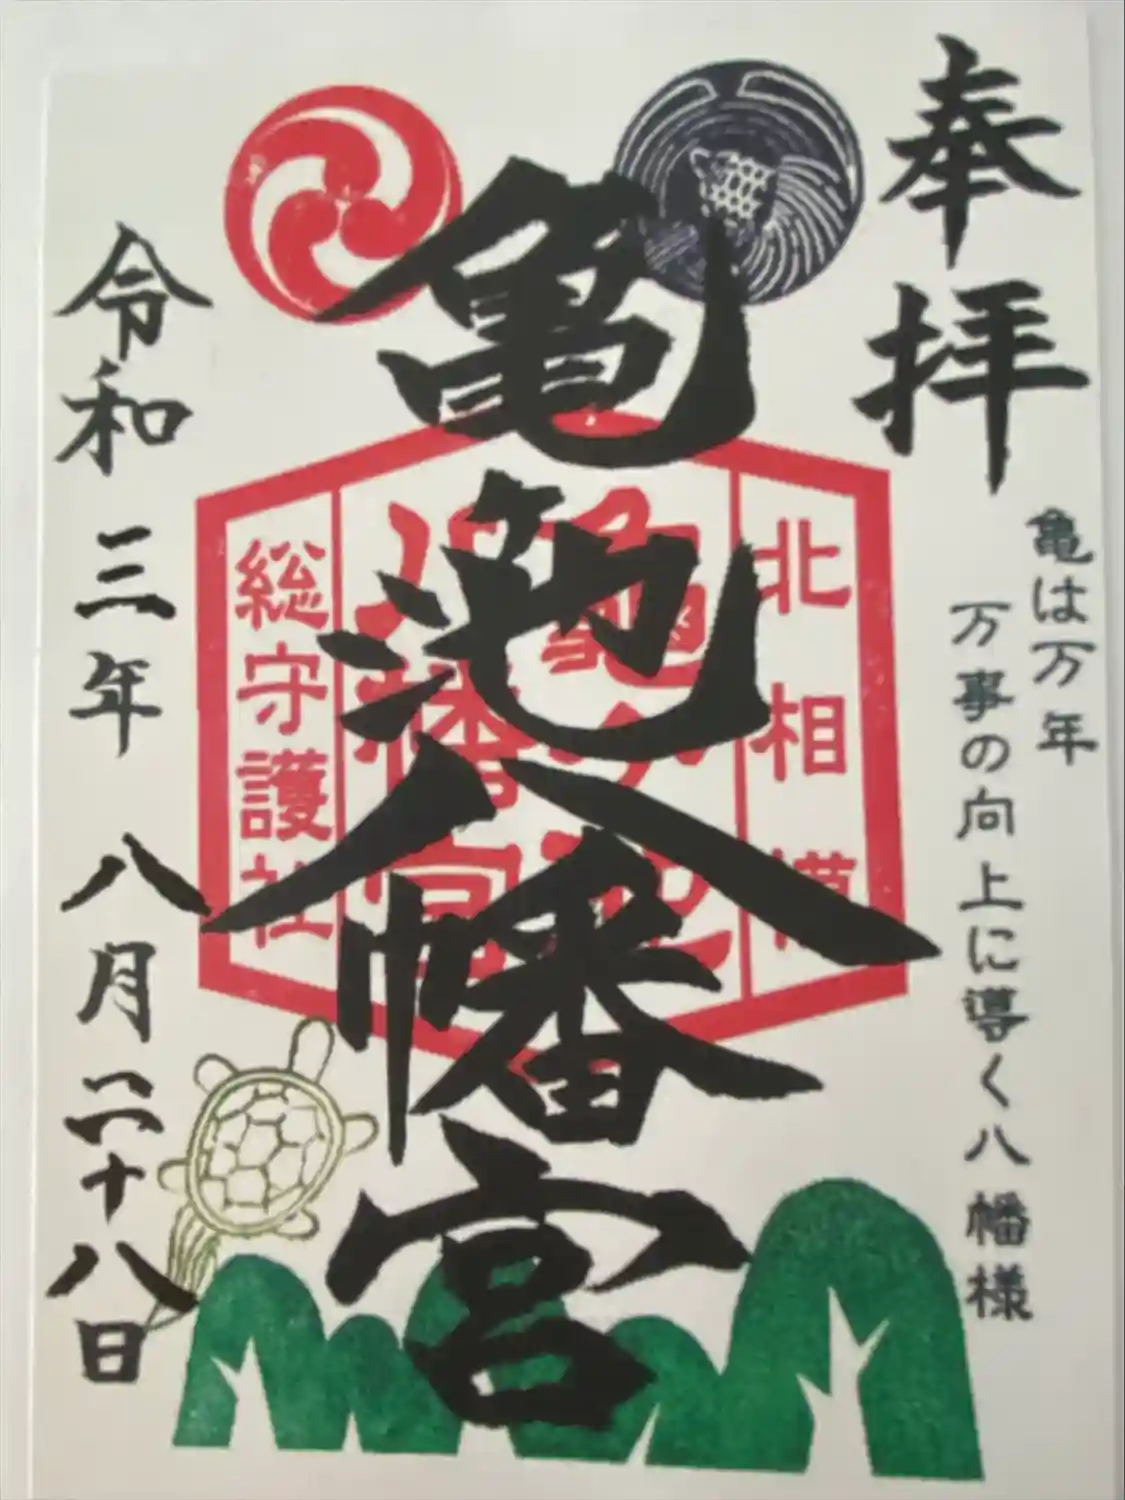 奉拝
亀は万年
万事の向上に導く八幡様
亀池八幡宮
北相模
亀ケ池
八幡宮
総守護社
令和三年八月二十八日